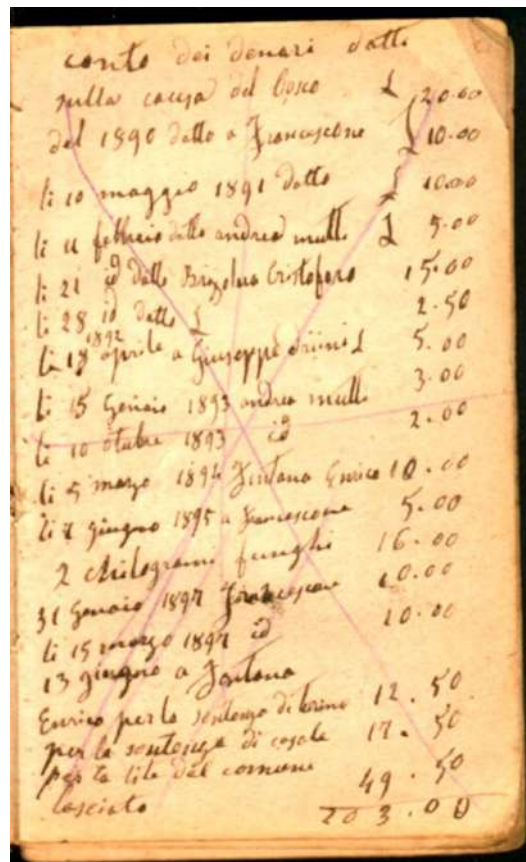 conto dei denari datti
sulla causa del bosco £ 20.00
del 1890 datto a Francescone £ 10.00
li 10 maggio 1891 datto £ 10.00
li 11 febbraio datto andrea mutti £ 5.00
li 21 id datto Cristoforo 15.00
li 28 id datto £ 2.50
li 18 aprile 1892 a Giuseppe £ 5.00
li 15 Genaio 1893 andrea mutti 3.00
li 10 otobre 1893 id 2.00
li 5 marzo 1894 Fontana Enrico 10.00
li 7 giugno 1895 a Francescone 5.00
2 chilogrami funghi 16.00
31 Genaio 1897 Francescone 10.00
li 15 marzo 1897 id 10.00
13 giugno a Fontana
Enrico per la sentenza di torino 12.50
per la sentenza di casale 17.50
per la lite del comune 49.50
lasciato 203.00